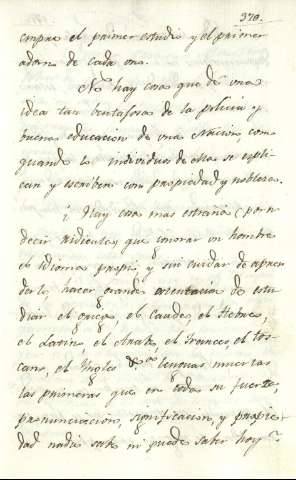 370.
empre el primer estudio y el primer
adorno de cada una.
No hay cosa que dé una
idea tan ventajosa de la policia y
buena educacion de una Nacion como
quando los individuos de ella se expli
can y escriben con propiedad y nobleza.
¿ Hay cosa mas estraña (por no
decir ridicula) que ignorar un hombre
el Idioma propio, y sin cuidar de apren
derlo, hacer grande ostentacion de estu
diar el Griego, el Caldeo, el Hebreo,
el Latin, el Arabe, el Frances, el tos
cano, el Ingles lenguas muertas
las primeras que en toda su fuerza,
pronunciacion, significacion, y propie
dad nadie sabe ni puede saber hoy